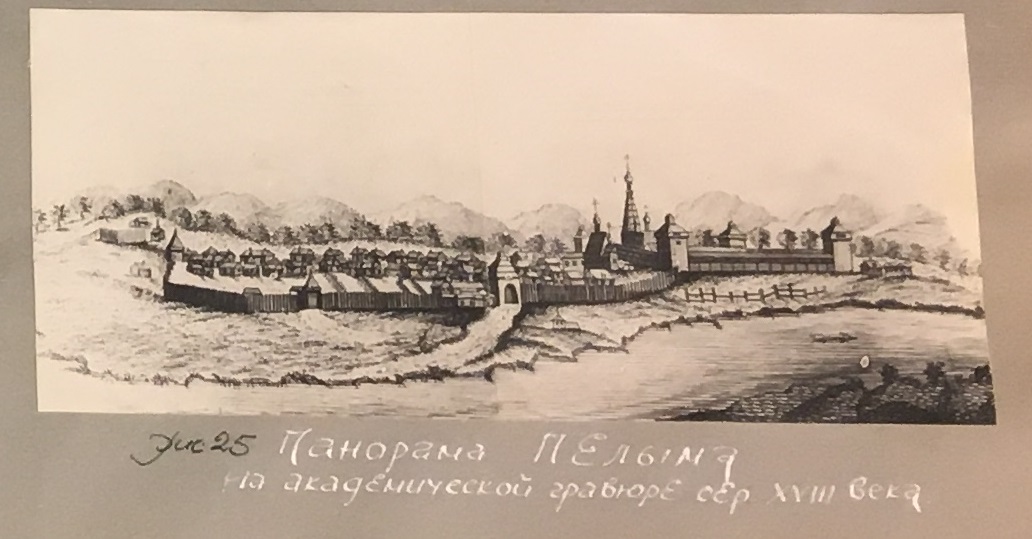 Рис 25 Панорама Пелыма
на академической гравюре сер. XVIII века